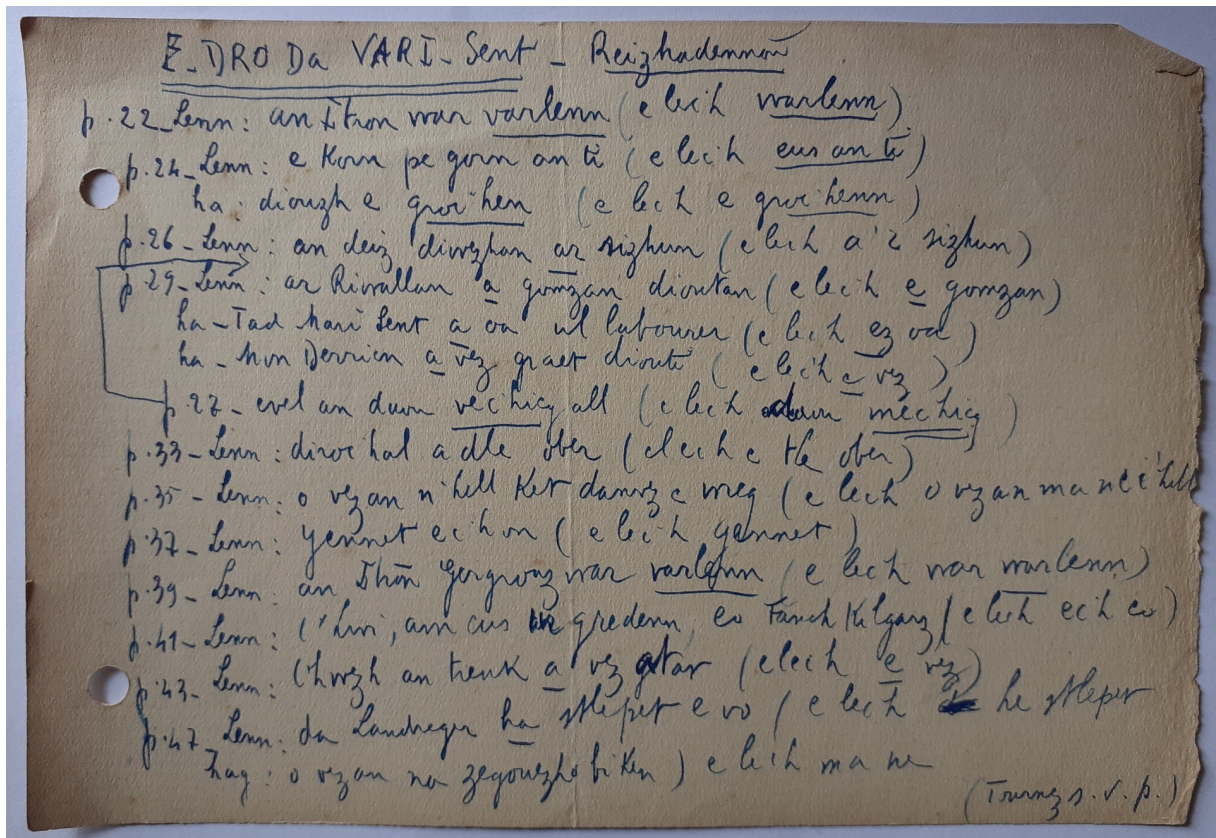 E-DRO Da VARI-Sent - Reizhadennoù
p.22_Lenn: an Itron war varlenn (e lec'h warlenn)
p.24_Lenn: e Korn pe gorn an ti (e lec'h eus an ti)
ha: diouzh e groc'hen (e lec'h e groc'henn)
p.26_Lenn: an deiz diwezhan ar sizhun (e lec'h a'r sizhun)
p.29_Lenn: ar Riwallan a gomzan dioutan (e lec'h e gomzan)
ha - Tad Mari Sent a oa ul labourer (e lec'h ez oa)
ha - Mon Derrien a vez graet diouti (e lec'h e vez)
p.27 - evel an daou vec'hieg all (e lec'h daou mec'hieg)
p.33 - Lenn: diroc'hal a dle ober (e lec'h e tle ober)
p.35 - Lenn: o vezan n'hell Ket danvez e vreg (e lec'h o vezan ma ne c'hell
p.37 - Lenn: gennet ec'hon (e lec'h gennet)
p.39 - Lenn: an Itron Gergrouz war varlenn (e lec'h war warlenn)
p.41 - Lenn: C'hwi, am eus gredenn, eo Fanch Kilgarz (e lec'h ec'h eo)
p.43 - Lenn: C'hwezh an treuk a vez gtar (e lec'h e vez)
p.47_Lenn: da Landreger ha stlepet e vo (e lec'h he stlepet
hag: o vezan na zegouezho biken) e lec'h ma ne
(Tournez s.v.p.)